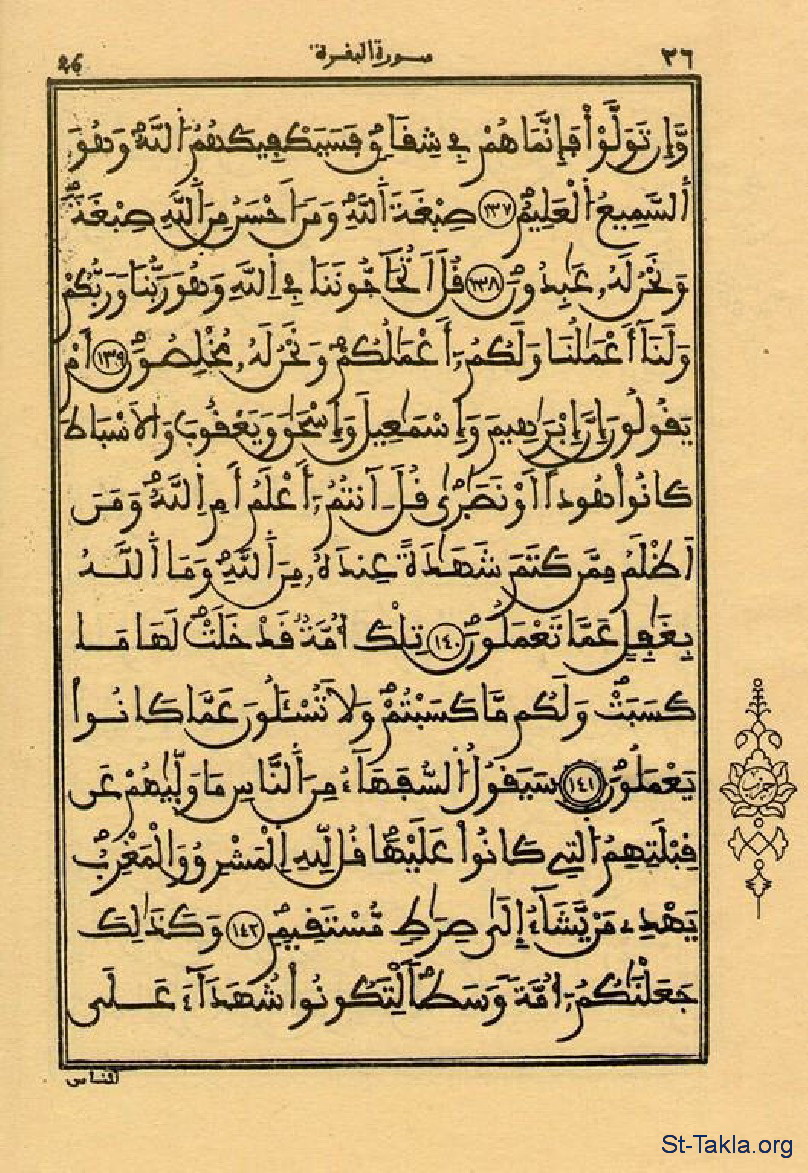 ٢٦ سورة البقرة 26
وَّإِن تَوَلَّوْاْ فَإِنَّمَا هُمْ فِي شِقَاقٍ فَسَيَكْفِيكَهُمُ اُللَّهُ وَهُوَ
اَلسَّمِيعُ اُلْعَلِيمُ ١٣٧ صِبْغَةَ اَللَّهِ وَمَنَ اَحْسَنُ مِنَ اَللَّهِ صِبْغَةً
وَنَحْنُ لَهُۥ عَٰبِدُونَ ١٣٨ قُلَ اَتُحَآجُّونَنَا فِي اِللَّهِ وَهُوَ رَبُّنَا وَرَبُّكُمْ
وَلَنَآ أَعْمَٰلُنَا وَلَكُمُۥٓ أَعْمَٰلُكُمْ وَنَحْنُ لَهُۥ مُخْلِصُونَ ١٣٩ أَمْ
يَقُولُونَ إِنَّ إِبْرَٰهِيمَ وَإِسْمَٰعِيلَ وَإِسْحَٰقَ وَيَعْقُوبَ وَالَاسْبَاطَ
كَانُواْ هُوداً اَوْ نَصَٰرَىٰ قُلَ آنتُمُۥٓ أَعْلَمُ أَمِ اِللَّهُ وَمَنَ
اَظْلَمُ مِمَّن كَتَمَ شَهَٰدَةً عِندَهُۥ مِنَ اَللَّهِ وَمَا اَللَّهُ
بِغَٰفِلٍ عَمَّا تَعْمَلُونَ ١٤٠ تِلْكَ أُمَّةٌ قَدْ خَلَتْ لَهَا مَا
كَسَبَتْ وَلَكُم مَّا كَسَبْتُمْ وَلَا تُسْـَٔلُونَ عَمَّا كَانُواْ
يَعْمَلُونَ ١٤١ سَيَقُولُ اُلسُّفَهَآءُ مِنَ اَلنَّاسِ مَا وَلَّىٰهُمْ عَن
قِبْلَتِهِمُ اُلَّتِي كَانُواْ عَلَيْهَا قُل لِّلهِ اِلْمَشْرِقُ وَالْمَغْرِبُ
يَهْدِي مَنْ يَّشَآءُ إِلَىٰ صِرَٰطٍ مُّسْتَقِيمٍ ١٤٢ وَكَذَٰلِكَ
جَعَلْنَٰكُمُۥٓ أُمَّةً وَسَطاً لِّتَكُونُواْ شُهَدَآءَ عَلَى
اَلناس
حزب
St-Takla.org